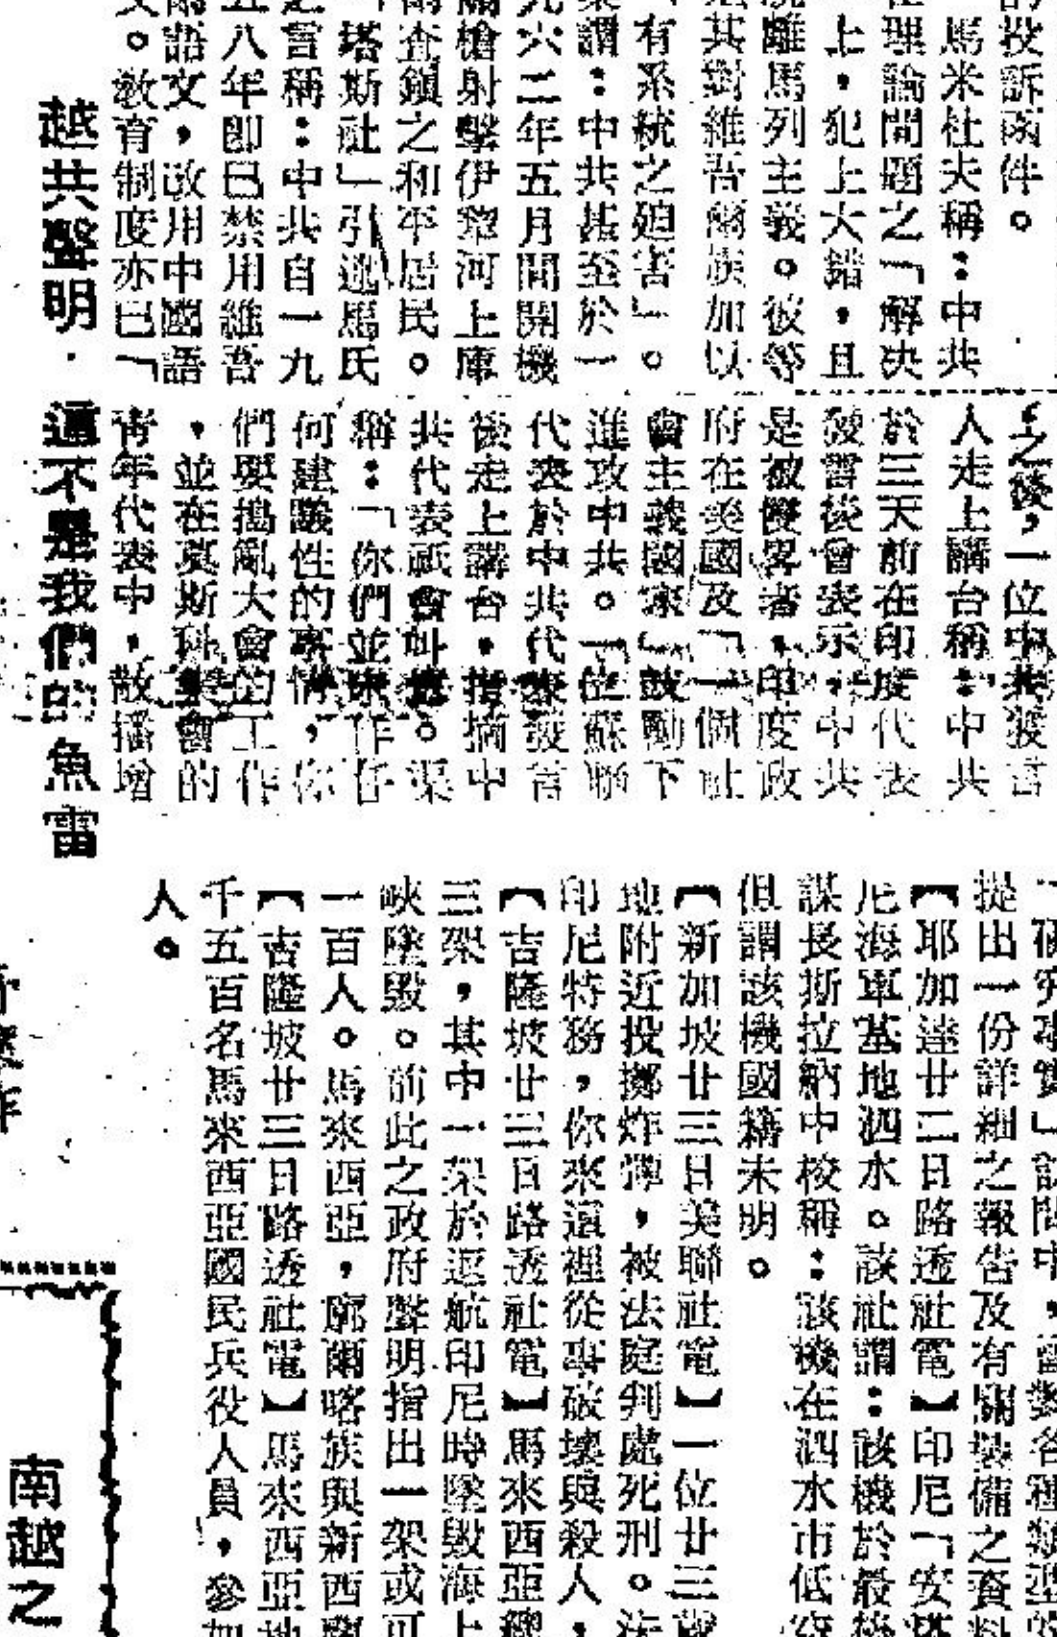 的投訴函件。
馬米杜夫稱：中共
在理論問題之「解决
上，犯上大錯，且
脫離馬列主義。彼等
其對維吾爾族加以
「有系統之廹害」。
謂：中共甚至於一
九六二年五月間開機
關槍射擊伊犂河上庫
爾查鎮之和平居民。
「塔斯社」引述馬氏
之言稱：中共自一九
五八年卽已禁用維吾
爾語文，改用中國語
文。敎育制度亦已「
越共聲明．這不是我們的魚雷
之後，一位中共發言
人走上講台稱：中共
於三天前在印度代表
發言後會表示，中共
是被侵畧者，印度政
府在美國及「一個社
會主義國家」鼓動下
進攻中共。一位蘇聯
代表於中共代表發言
後走上講台，指摘中
共代表祗會叫囂。渠
稱：「你們並未作任
何建議性的事情，你
們要搗亂大會的工作
，並在莫斯科集會的
靑年代表中，散播增
提出一份詳細之報告及有關裝備之資料
【耶加達廿二日路透社電】印尼「安塔
尼海軍基地泗水。該社謂：該機於最後
謀長斯拉納中校稱：該機在泗水市低空
但謂該機國籍未明。
【新加坡廿三日美聯社電】一位廿三歲
地附近投擲炸彈，被法庭判處死刑。法
印尼特務，你來這裡從事破壞與殺人，
【吉隆坡廿三日路透社電】馬來西亞總
三架，其中一架於返航印尼時墜毀海上
峽墜毀。前此之政府聲明指出一架或可
一百人。馬來西亞，廓爾喀族與新西蘭
【吉隆坡廿三日路透社電】馬來西亞地
千五百名馬來西亞國民兵役人員，參加
人。
南越之